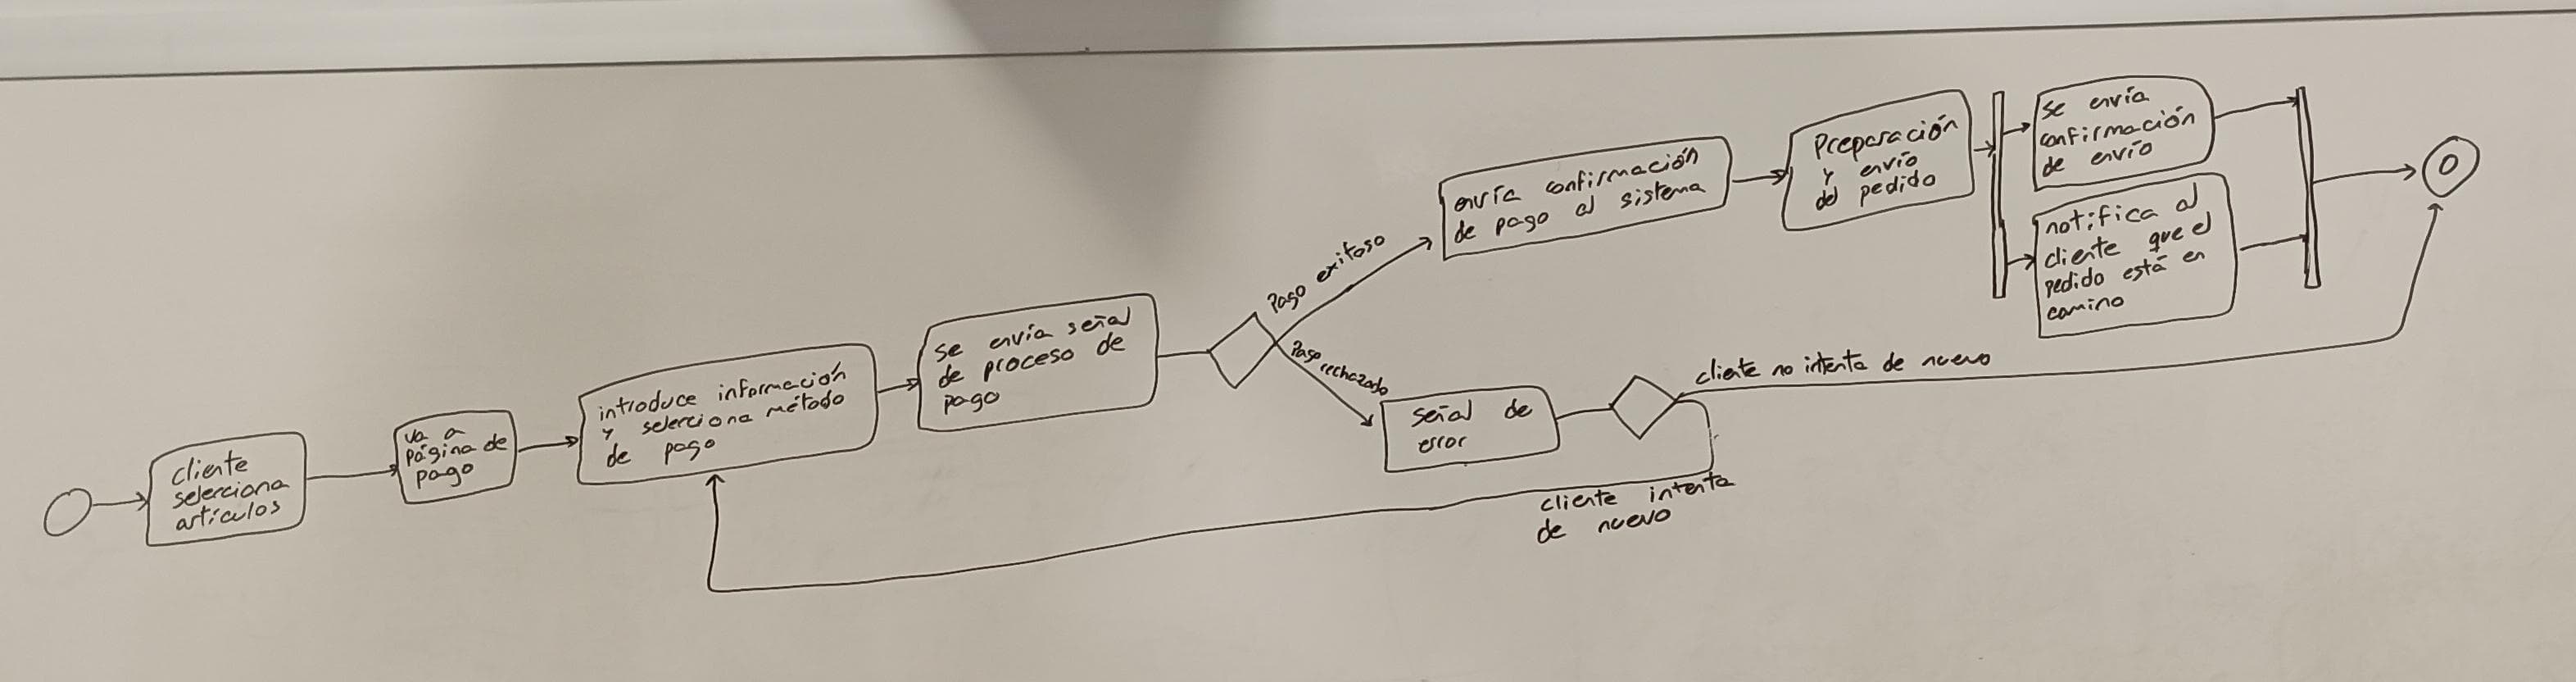 cliente
selecciona
artículos
va a
página de
pago
introduce información
y selecciona método
de pago
se envía señal
de proceso de
pago
Pago exitoso
Pago rechazado
envía confirmación
de pago al sistema
Preparación
y envío
del pedido
se envía
confirmación
de envío
notifica al
cliente que el
pedido está en
camino
señal de
error
cliente no intenta de nuevo
cliente intenta
de nuevo